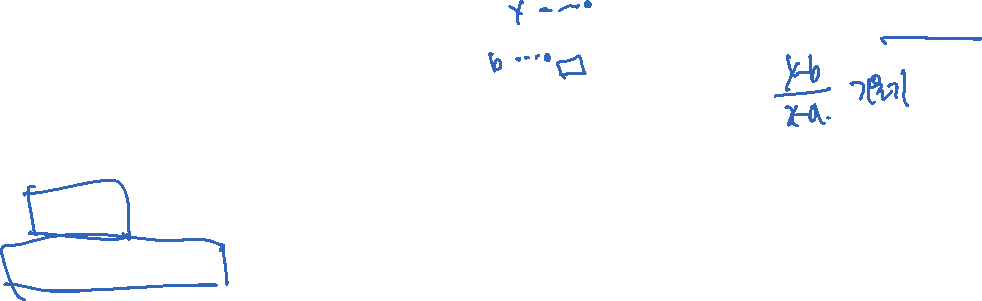 y
b
y-b
x-a. 기울기